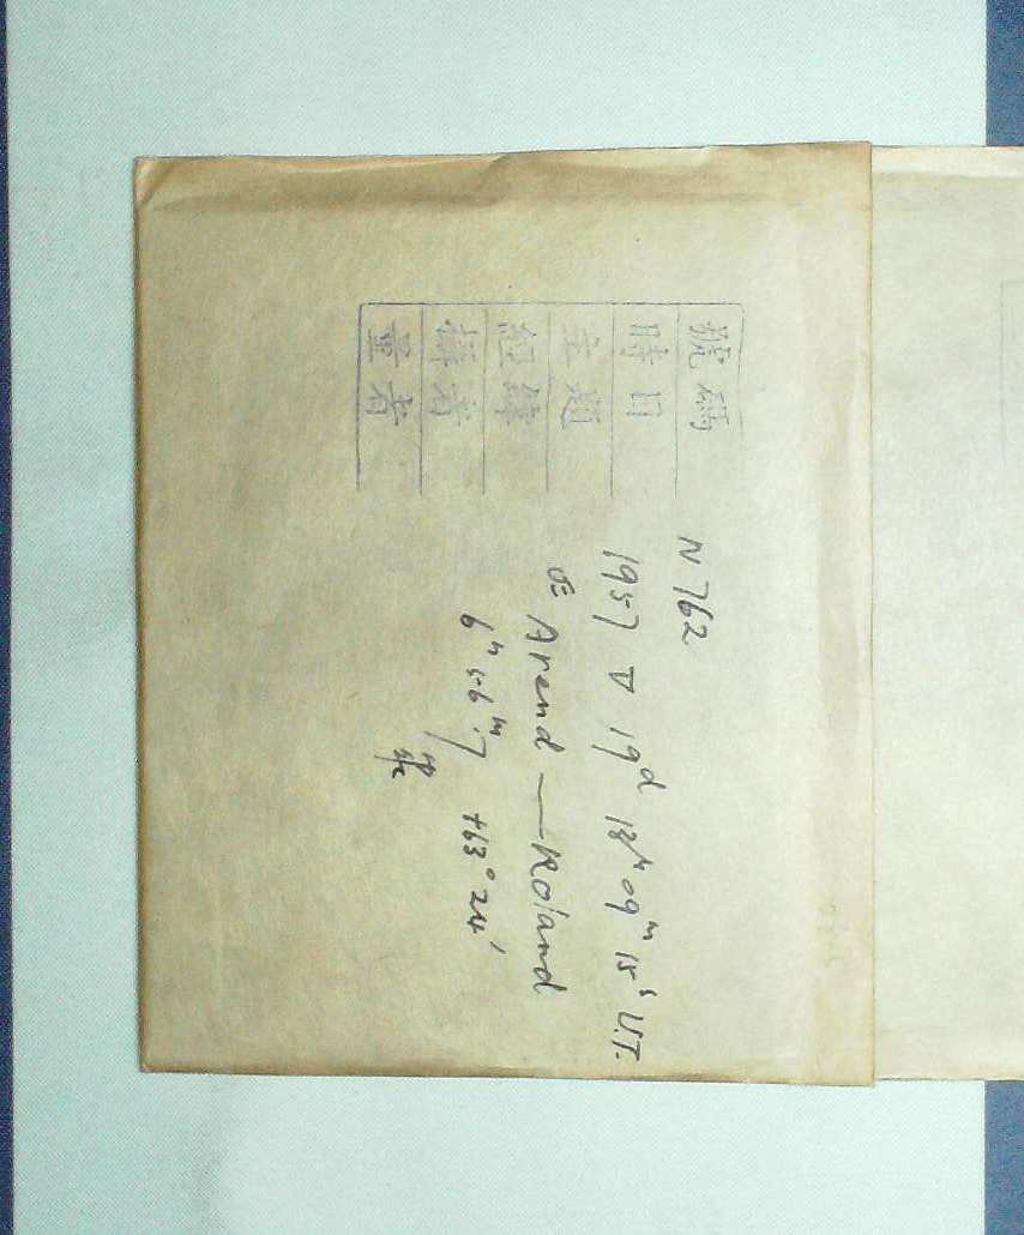 號碼 N 762
時日 1957 V 19ᵈ 13ʰ 09ᵐ 15ˢ U.T.
主題 Arend — Roland
經緯 6ʰ 56ᵐ.7 +63° 24′
攝者
量者